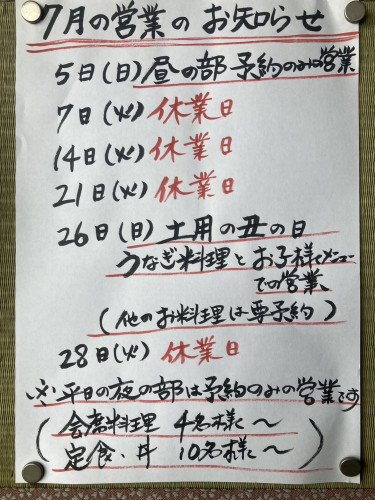 7月の営業のお知らせ
5日(日)昼の部予約のみの営業
7日(火)休業日
14日(火)休業日
21日(火)休業日
26日(日)土用の丑の日
うなぎ料理とお子様メニュー
での営業
(他のお料理は要予約)
28日(火)休業日
※平日の夜の部は予約のみの営業です
(会席料理 4名様〜
定食・丼 10名様〜)